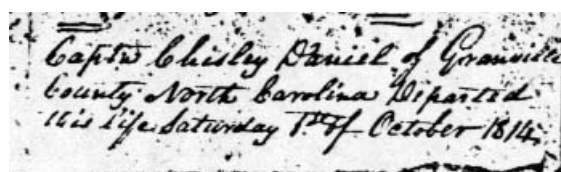 Captn Chisley Daniel of Granville
County North Carolina Departed
this life Saturday 1st of October 1814.